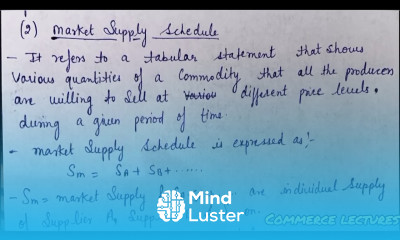 (2) Market Supply Schedule
- It refers to a tabular statement that shows
various quantities of a commodity that all the producers
are willing to sell at various different price levels.
during a given period of time.
- Market Supply Schedule is expressed as:-
Sm = SA + SB + ......
- Sm = market Supply are individual Supply
of Supplier A, Supp
Mind
Luster
COMMERCE LECTURES